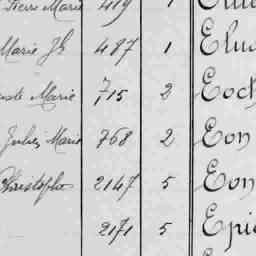 Pierre Marie 419 1
Marie Jh 487 1
Marie 715 2 Eoch
Jules Marie 768 2 Eon
Christophe 2147 5 Eon
2171 5 Epi